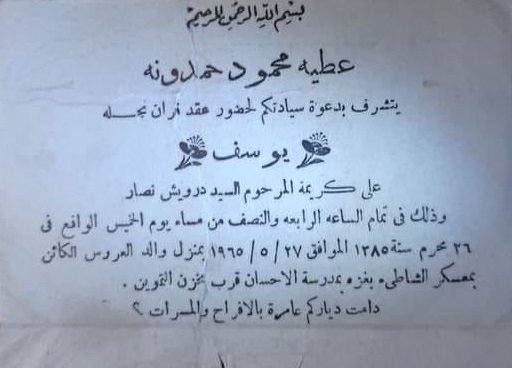 بسم الله الرحمن الرحيم
عطيه محمود حمدونه
يتشرف بدعوة سيادتكم لحضور عقد قران نجله
يوسف
على كريمة المرحوم السيد درويش نصار
وذلك فى تمام الساعه الرابعه والنصف من مساء يوم الخميس الواقع فى
٢٦ محرم سنة ١٣٨٥ الموافق ٢٧ / ٥ / ١٩٦٥ بمنزل والد العروس الكائن
بمعسكر الشاطىء بغزه بمدرسة الاحسان قرب مخزن التموين .
دامت دياركم عامرة بالافراح والمسرات ؟